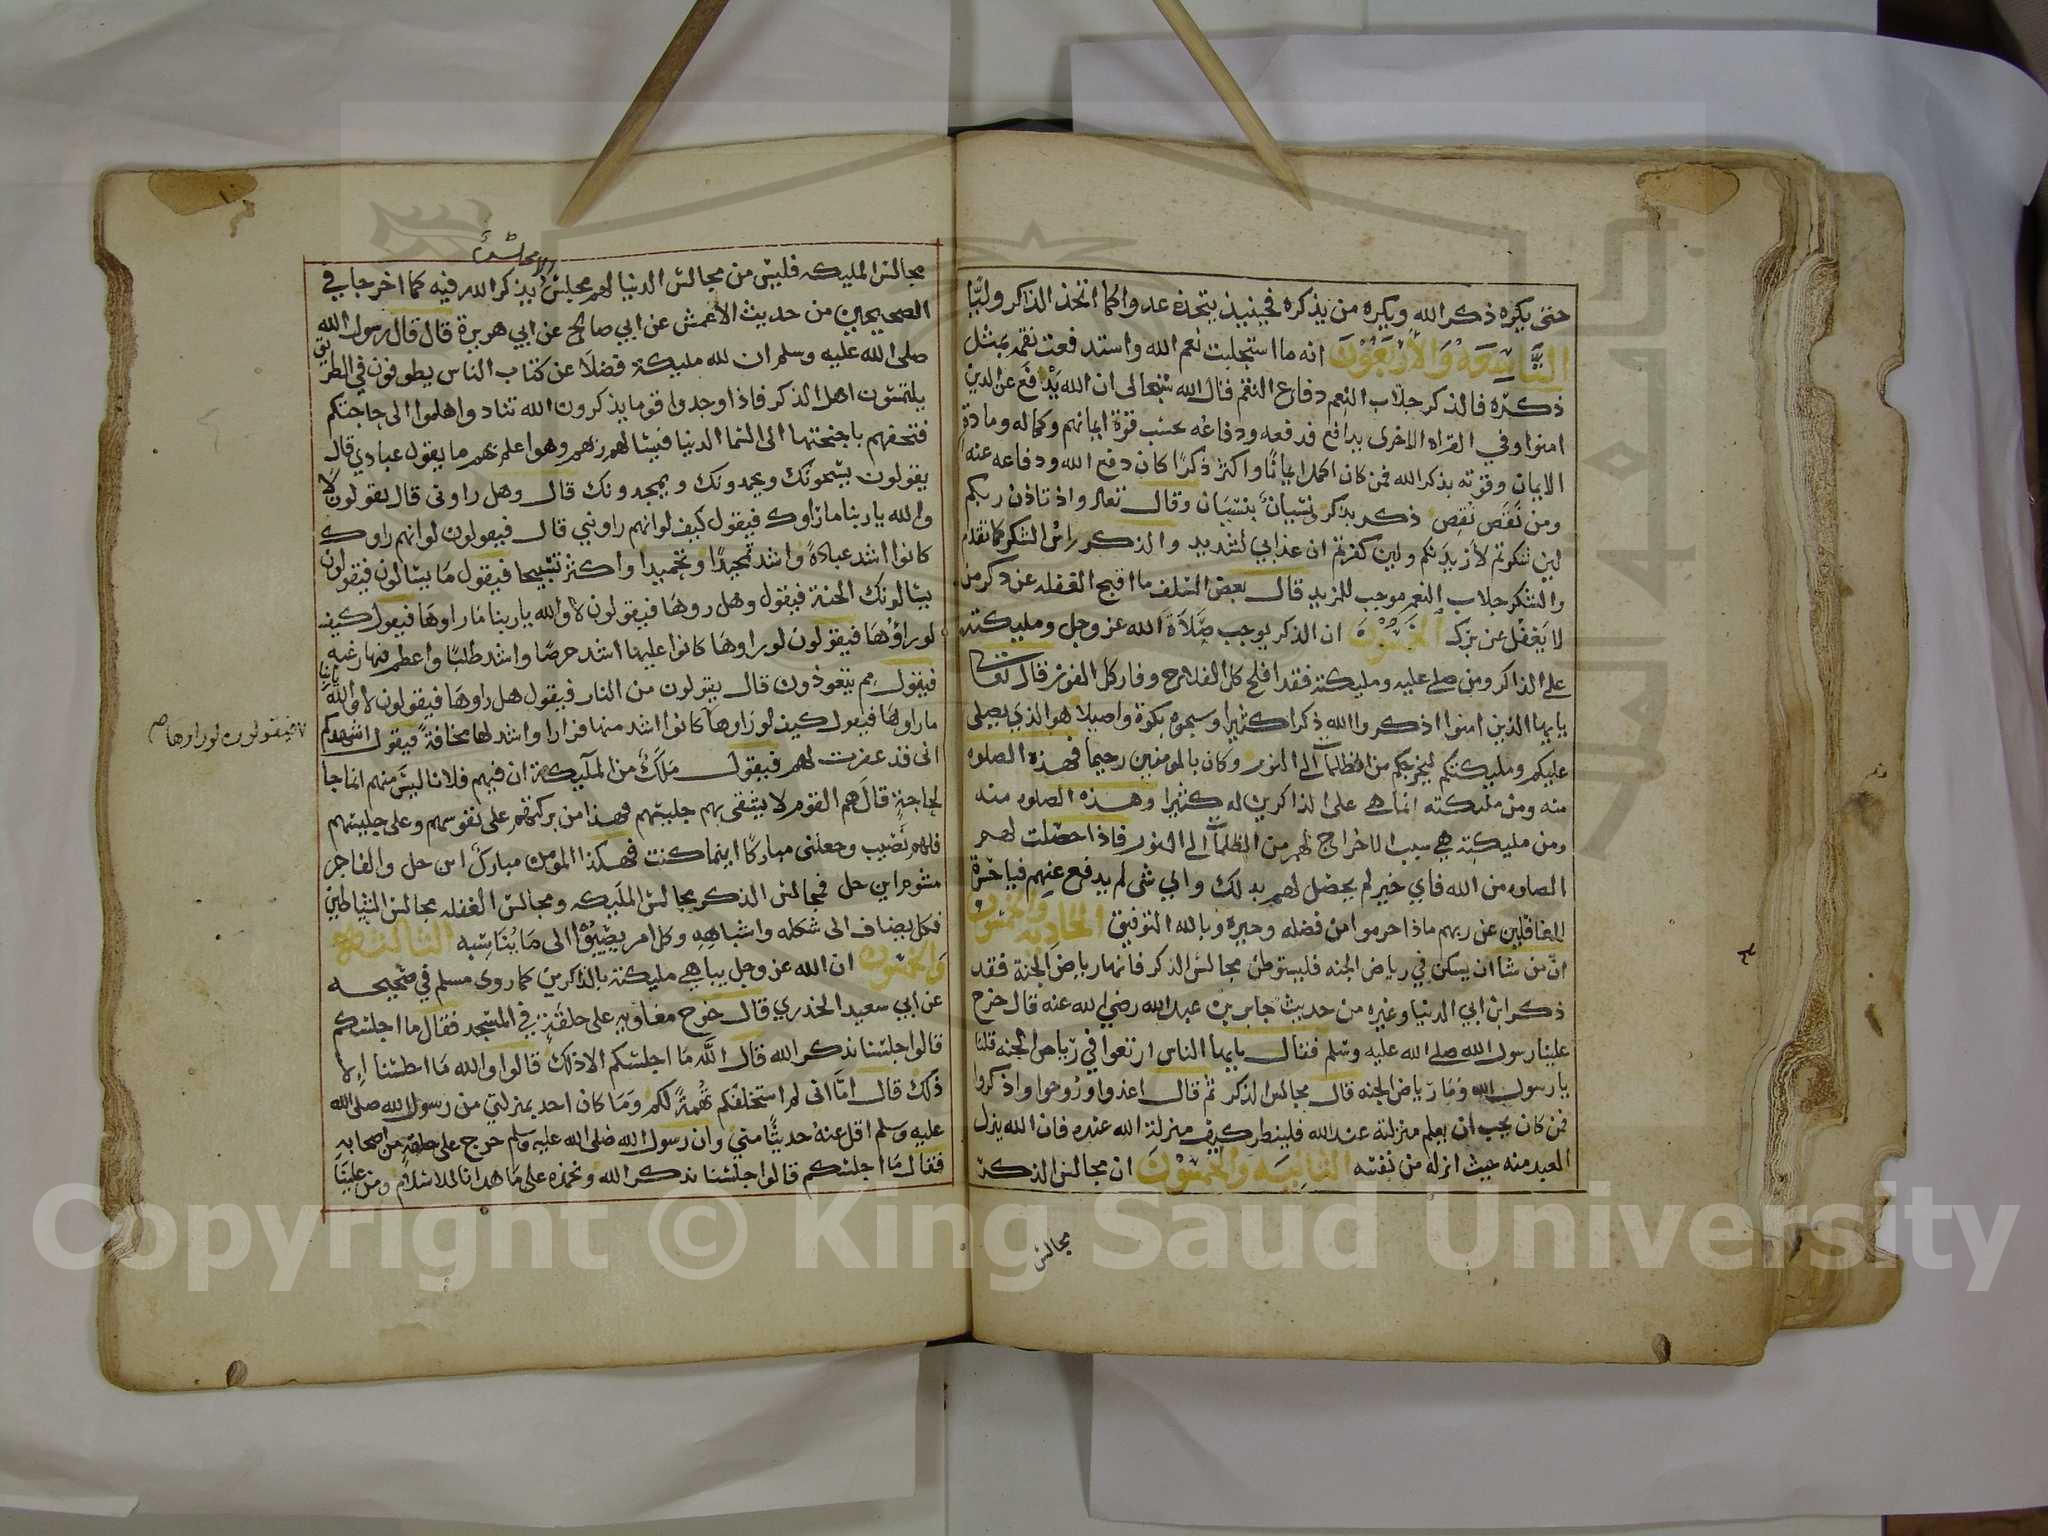 حتى يكره ذكر الله ويكره من يذكره فحينيذ يتخذه عدوا كما اتخذ الذاكر وليًّا
التَّاسِعَةُ وَالأَرْبَعُوْنَ انه ما استجلبت نعم الله واستدفعت نقمه بمثل
ذكره فالذكر جلاب النعم دفاع النقم قال الله تعالى ان الله يدفع عن الذين
امنوا وفي القراه الاخرى يدافع فدفعه ودفاعه بحسب قوة ايمانهم وكماله ومادة
الايمان وقوته بذكر الله فمن كان اكمل ايمانًا واكثر ذكرًا كان دفع الله ودفاعه عنه
ومن نَقَص نُقِص ذكر بذكر ونسيان بنسيان وقال تعالى واذ تاذن ربكم
لين شكرتم لأزيدنكم ولين كفرتم ان عذابي لشديد والذكر راس الشكر كما تقدم
والشكر جلاب النعم موجب للمزيد قال بعض السلف ما اقبح الغفله عن ذكر من
لا يَغْفُل عن برك الخَمْسُوْنَ ان الذكر يوجب صَلَاةَ الله عز وجل ومليكته
على الذاكر ومن صلى عليه ومليكته فقد افلح كل الفلاح وفاز كل الفوز قال تعالى
يايها الذين امنوا اذكروا الله ذكرا كثيرا وسبحوه بكرة واصيلا هو الذي يصلى
عليكم ومليكته ليخرجكم من الظلمات الى النور وكان بالمومنين رحيما فهذه الصلوه
منه ومن مليكته انما هي على الذاكرين له كثيرا وهذه الصلوه منه
ومن مليكته هي سبب الاخراج لهم من الظلمات الى النور فاذا حصلت لهم
الصلوه من الله فاي خير لم يحصل لهم بذلك واي شى لم يدفع عنهم فيا حسرة
للغافلين عن ربهم ماذا حرموا من فضله وخيره وبالله التوفيق الحادية والخمسون
انَّ من شا ان يسكن في رياض الجنه فليستوطن مجالس الذكر فانها رياض الجنة فقد
ذكر ابن ابي الدنيا وغيره من حديث جابر بن عبد الله رضي الله عنه قال خرج
علينا رسول الله صلى الله عليه وسلم فقال يايها الناس ارتعوا في رياض الجنه قلنا
يا رسول الله وما رياض الجنه قال مجالس الذكر ثم قال اغدوا وروحوا واذكروا
فمن كان يحب ان يعلم منزلته عند الله فلينظر كيف منزلة الله عنده فان الله ينزل
العبد منه حيث انزله من نفسه الثانِيَه والخَمْسُوْنَ ان مجالس الذكر
مجالس
الا مجلسٌ
مجالس المليكه فليس من مجالس الدنيا لهم مجلسٌ يذكر الله فيه كما اخرجا في
الصحيحين من حديث الاعمش عن ابي صالح عن ابي هريرة قال قال رسول الله
صلى الله عليه وسلم ان لله مليكة فضلاً عن كتاب الناس يطوفون في الطريق
يلتمسون اهل الذكر فاذا وجدوا قوما يذكرون الله تنادوا هلموا الى حاجتكم
فتحفهم باجنحتها الى السما الدنيا فيسالهم ربهم وهو اعلم بهم ما يقول عبادي قال
يقولون يسبحونك ويحمدونك ويمجدونك قال وهل راوني قال يقولون لا
والله يا ربنا ما راوك فيقول كيف لو انهم راوني قال فيقولون لو انهم راوك
كانوا اشد عبادةً واشد تمجيدًا وتحميدا واكثر تسبيحا فيقول ما يسالون فيقولون
يسالونك الجنة فيقول وهل روها فيقولون لا والله يا ربنا ما راوها فيقول كيف
لو راوها فيقولون لو راوها كانوا عليها اشد حرصًا واشد طلبًا واعظم فيها رغبه
فيقول مم يتعوذون قال يقولون من النار فيقول هل راوها فيقولون لا والله يا ربنا
ما راوها فيقول كيف لو راوها كانوا اشد منها فرارا واشد لها مخافةً فيقول اشهدكم
فيقولون لو راوها ص
انى قد غفرت لهم فيقول مَلَكٌ من الملآيكة ان فيهم فلانا ليس منهم انما جا
لحاجةٍ قال هم القوم لا يشقى بهم جليسهم فهذا من بركتهم على نفوسهم وعلى جليسهم
فلهم نَصيب وجعلنى مباركًا اينما كنت فهكذا المومن مباركٌ اين حل والفاجر
مشوم اين حل فمجالس الذكر مجالس المليكه ومجالس الغفله مجالس الشياطين
فكل يضاف الى شكله واشباهه وكل امر يصير الى ما يُنَاسِبه الثالثة
وَالخمسُون ان الله عز وجل يباهي مليكته بالذاكرين كما روى مسلم في صحيحه
عن ابي سعيد الخدري قال خرج معاويه على حلقةٍ في المسجد فقال ما اجلسكم
قالوا جلسنا نذكر الله قال اللَّه ما اجلسكم الا ذلك قالوا والله ما اجلسنا الا
ذلك قال امَّا انى لم استحلفكم تُهْمَةً لكم وما كان احد بمنزلتي من رسول الله صلى الله
عليه وسلم اقل عنه حديثًا مني وان رسول الله صلى الله عليه وسلم خرج على حلقةٍ من اصحابه
فقال ما اجلسكم قالوا جلسنا نذكر الله ونحمده على ما هدانا للاسلام ومن علينَا
Copyright © King Saud University